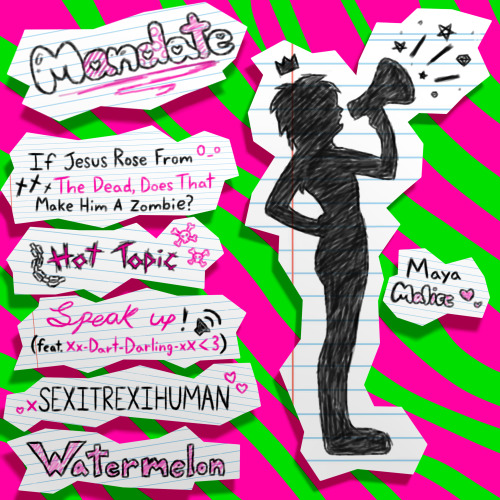 Mandate
If Jesus Rose From O_o
The Dead, Does That
Make Him A Zombie?
Hot Topic
Speak up!
(feat. Xx-Dart-Darling-xX<3)
xSEXITREXIHUMAN
Watermelon
Maya
Malice